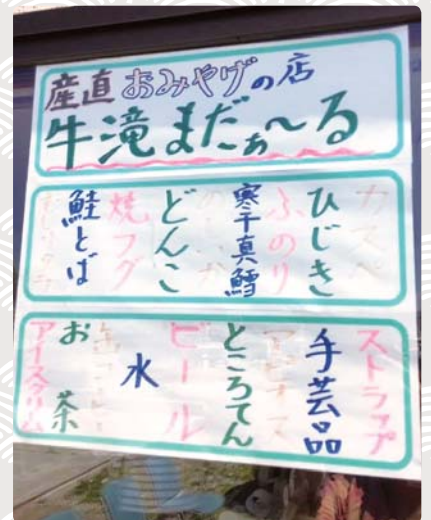 産直おみやげの店
牛滝まだぁ〜る
カスベ
ひじき
ふのり
寒干真鱈
どんこ
焼フグ
鮭とば
ストラップ
手芸品
ところてん
ビール
水
缶コーヒー
お茶
アイスクリーム